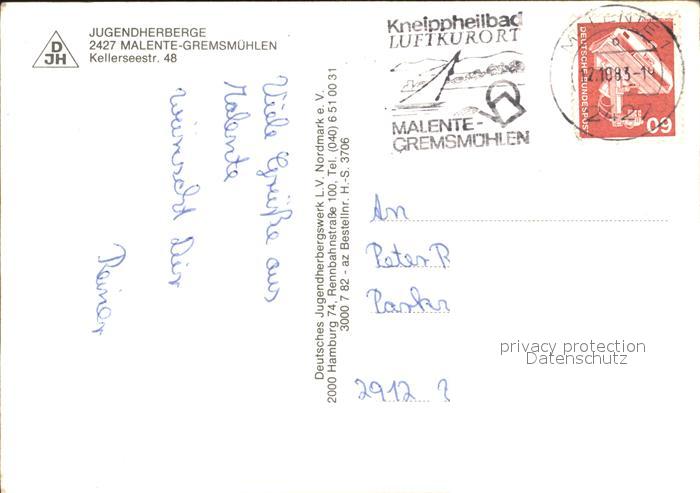 DJH
JUGENDHERBERGE
2427 MALENTE-GREMSMÜHLEN
Kellerseestr. 48
Kneippheilbad
LUFTKURORT
MALENTE-
GREMSMÜHLEN
MALENTE 1
2.10.83-
2427
DEUTSCHE BUNDESPOST
60
Viele Grüße aus
Malente
wünscht Dir
Rainer
Deutsches Jugendherbergswerk L.V. Nordmark e. V.
2000 Hamburg 74, Rennbahnstraße 100, Tel. (040) 6 51 00 31
3000 7 82 - az Bestellnr. H.-S. 3706
An
Peter R
Parkr
2912
privacy protection
Datenschutz